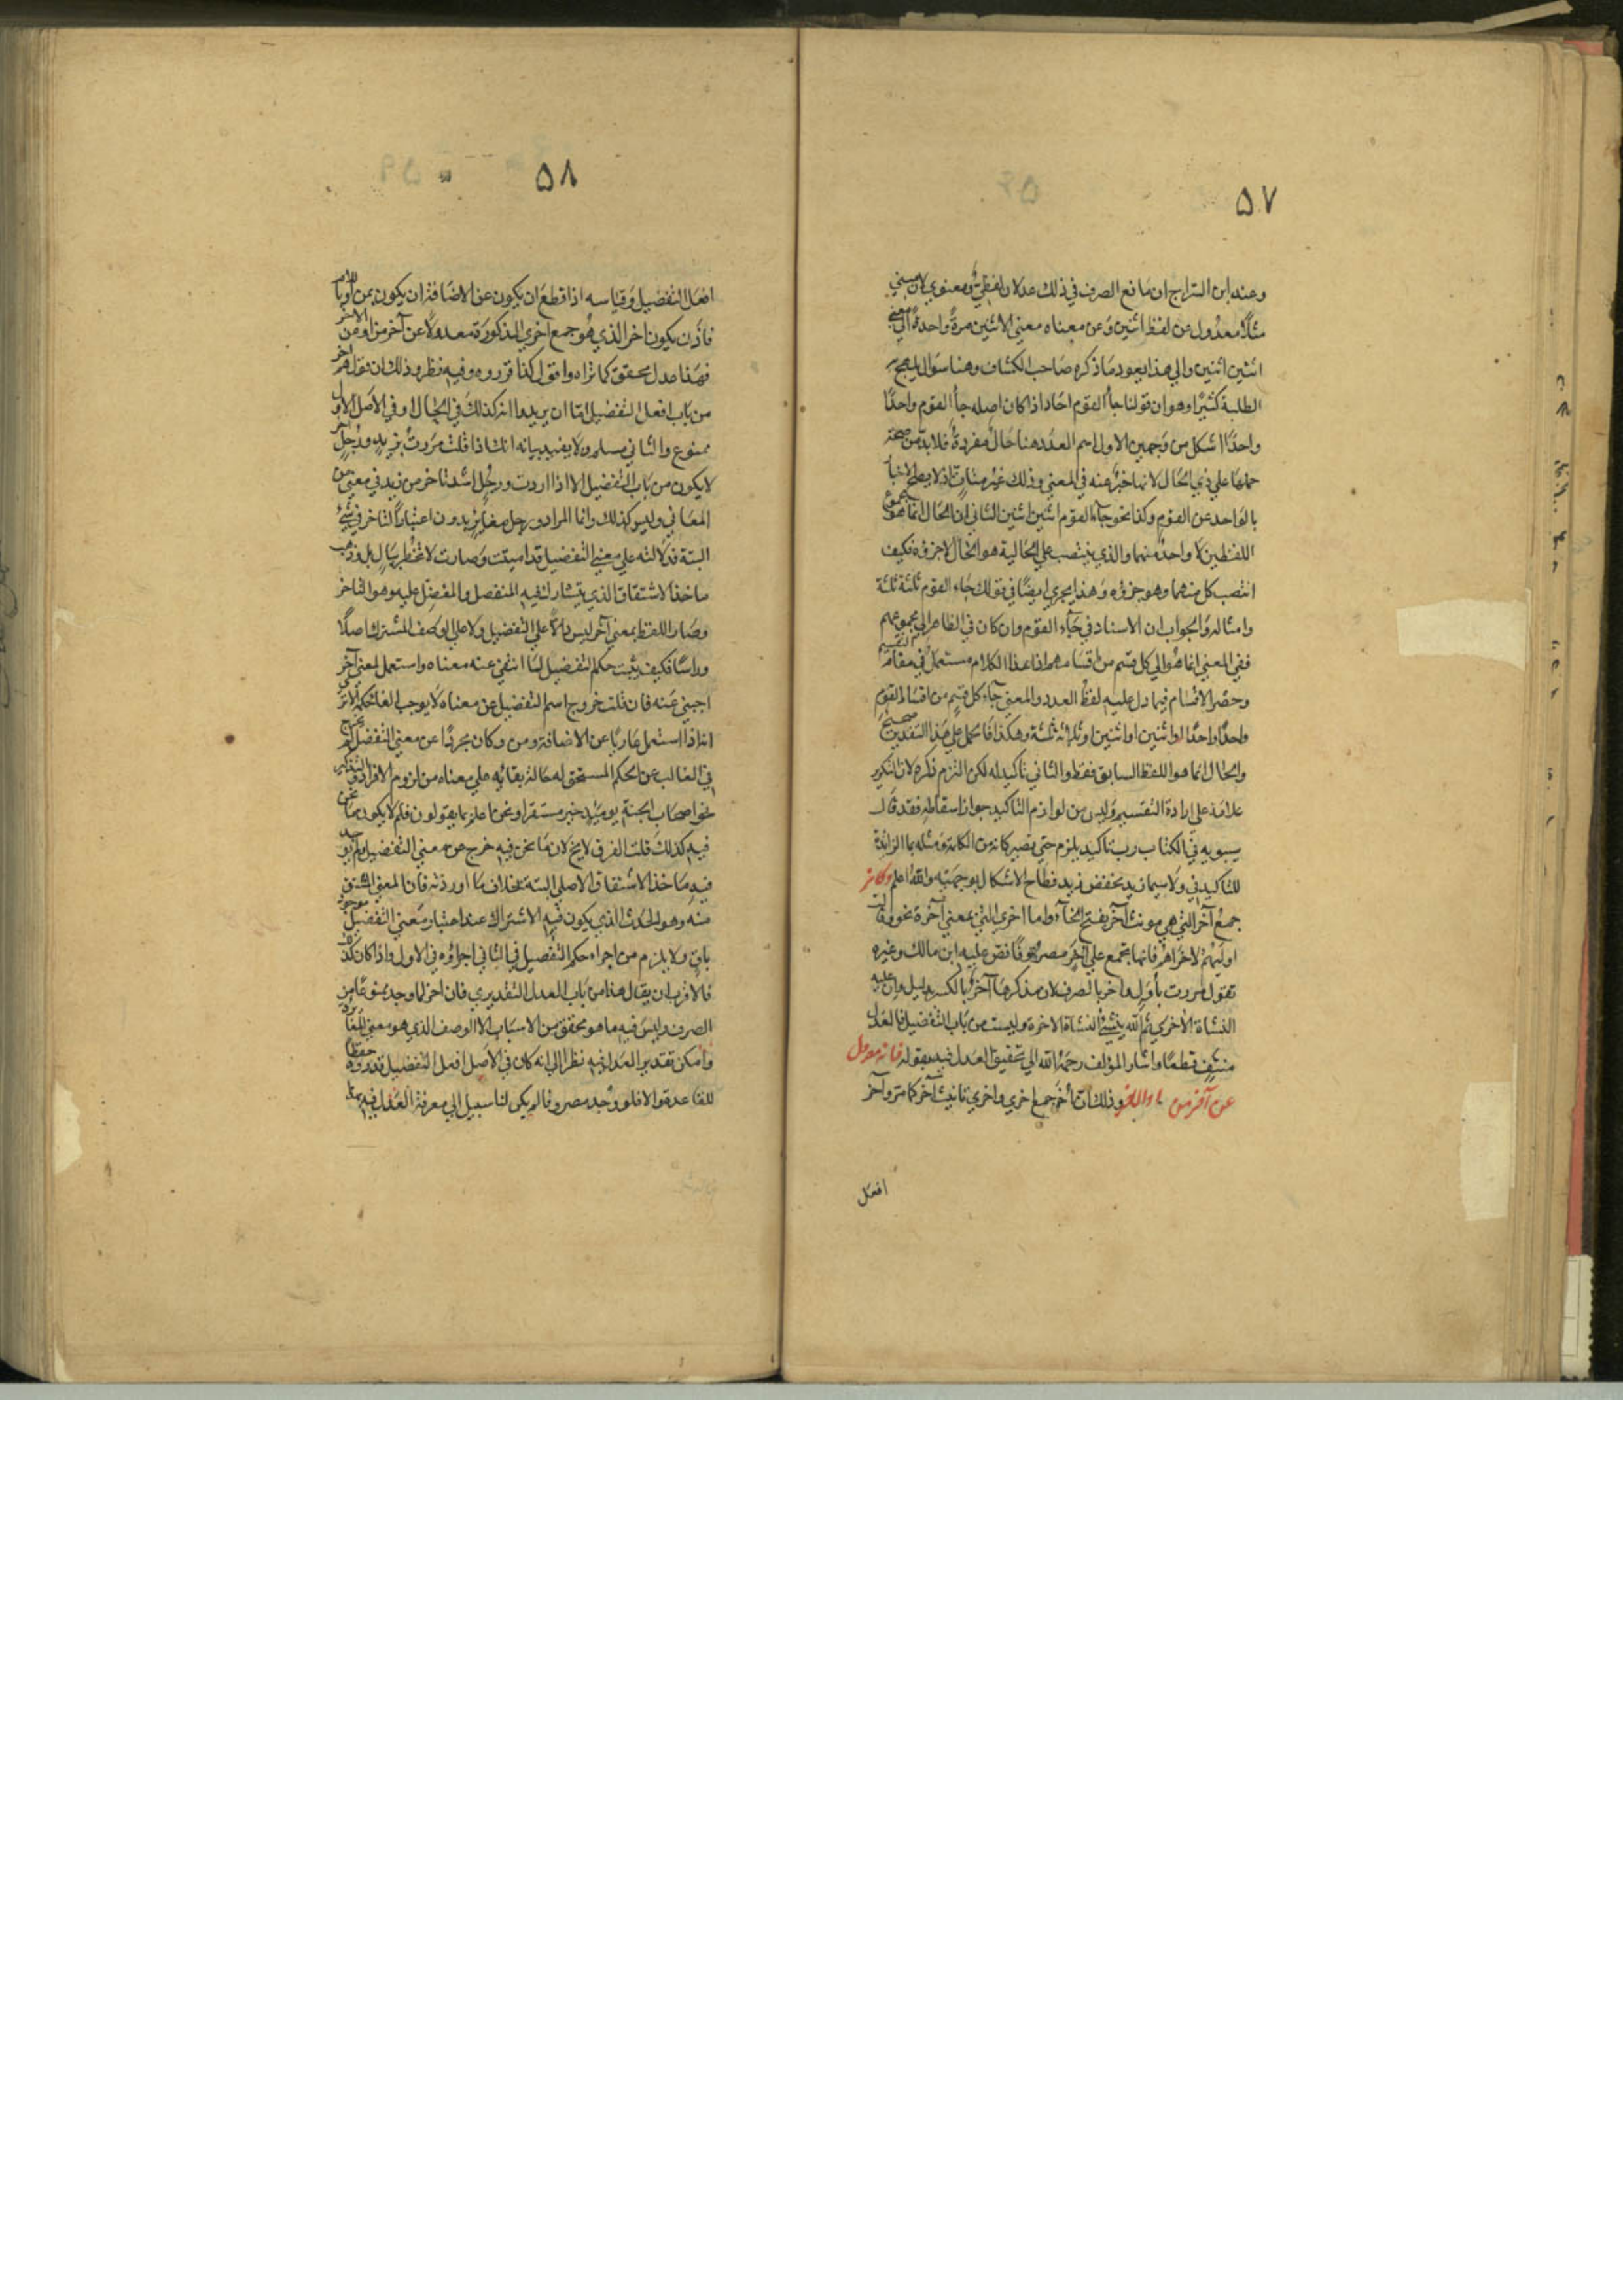 ٥٧
وعند ابن السراج ان مانع الصرف في ذلك عدلان لفظي ومعنوي لان مثنى
مثلا معدول عن لفظ اثنين وعن معناه معنى الاثنين مرة واحدة الى معنى
اثنين اثنين والى هذا يعود ما ذكره صاحب الكشاف وهنا سؤال يلهج به
الطلبة كثيرا وهو ان قولنا جاء القوم احاد اذا كان اصله جاء القوم واحدا
واحدا اشكل من وجهين الاول اسم العدد هنا حال مفردة فلا بد من صحة
حملها على ذي الحال لانها خبر عنه في المعنى وذلك غير متات اذ لا يصح الاخبار
بالواحد عن القوم وكذا نحو جاء القوم اثنين اثنين الثاني ان الحال انما هو مجموع
اللفظين لا واحد منهما والذي ينتصب على الحالية هو الحال لا جزؤه فكيف
انتصب كل منهما وهو جزؤه وهذا يجري ايضا في قولك جاء القوم ثلثة ثلثة
وامثاله والجواب ان الاسناد في جاء القوم وان كان في الظاهر الى مجموعهم
ففي المعنى انما هو الى كل قسم من اقسامهم اذ هذا الكلام مستعمل في مقام التقسيم
وحصر الاقسام فيما دل عليه لفظ العدد والمعنى جاء كل قسم من اقسام القوم
واحدا واحدا او اثنين او اثنين او ثلثة ثلثة وهكذا فالحمل على هذا التقدير صحيح
والحال انما هو اللفظ السابق فقط والثاني تاكيد له لكن التزم ذكره لان التكرير
علامة على ارادة التقسيم وليس من لوازم التاكيد جواز اسقاطه فقد قال
سيبويه في الكتاب رب تاكيد يلزم حتى يصير كانه من الكلمة ومثله بما الزائدة
للتاكيد في ولا سيما زيد بخفض زيد فطاح الاشكال بوجهيه والله اعلم وكاخر
جمع آخر التي هي مونث آخر بفتح الخاء واما اخرى التي بمعنى آخرة نحو وقالت
اوليهم لاخراهم فانها تجمع على اخر مصروفا نص عليه ابن مالك وغيره
تقول مررت باول واخر بالصرف لان مذكرها آخر بالكسر بدليل وان عليه
النشاة الاخرى ثم الله ينشئ النشاة الاخرة وليست من باب التفضيل فالعدل
منتف قطعا واشار المؤلف رحمه الله الى تحقيق العدل فيه بقوله فانه معدول
عن آخر من او الاخر وذلك ان اخر جمع اخرى واخرى تانيث آخر كما مر وآخر
افعل
٥٨
افعل التفضيل وقياسه اذا قطع ان يكون عن الاضافة ان يكون بمن او باللام
فاذن يكون اخر الذي هو جمع اخرى المذكورة معدولا عن آخر من او من الاخر
فهذا عدل محقق كما تراه واقول كذا قرروه وفيه نظر وذلك ان قولهم اخر
من باب افعل التفضيل اما ان يريدوا انه كذلك في الحال او في الاصل الاول
ممنوع والثاني مسلم ولا يفيد بيانه انك اذا قلت مررت بزيد ورجل آخر
لا يكون من باب التفضيل الا اذا اردت ورجل اشد تاخرا من زيد في معنى من
المعاني وليس كذلك وانما المراد ورجل مغاير زيد من دون اعتبار التاخر في شيء
البتة فدلالته على معنى التفضيل قد اميتت وصارت لا تخطر ببال بل وذهب
ماخذ الاشتقاق الذي يتشارك فيه المفضل والمفضل عليه وهو التاخر
وصار اللفظ بمعنى آخر ليس دالا على التفضيل ولا على الوصف المشترك اصلا
وراسا فكيف يثبت حكم التفضيل لما انتفى عنه معناه واستعمل لمعنى آخر
اجنبي عنه فان قلت خروج اسم التفضيل عن معناه لا يوجب الغاء حكمه الا ترى
انه اذا استعمل عاريا عن الاضافة ومن وكان مجردا عن معنى التفضيل لم يخرج
في الغالب عن الحكم المستحق له حالة بقائه على معناه من لزوم الافراد والتذكير
نحو اصحاب الجنة يومئذ خير مستقرا ونحن اعلم بما يقولون فلم لا يكون ما نحن
فيه كذلك قلت الفرق لايح لان ما نحن فيه خرج عن معنى التفضيل ولم يوجد
فيه ماخذ الاشتقاق الاصلي البتة بخلاف ما اوردته فان المعنى المشتق
منه وهو الحدث الذي يكون فيه الاشتراك عند اعتبار معنى التفضيل موجود
باق ولا يلزم من اجراء حكم التفضيل في الثاني اجراؤه في الاول واذا كان كذلك
فالاقرب ان يقال هذا من باب العدل التقديري فان اخر لما وجد ممنوعا من
الصرف وليس فيه ما هو محقق من الاسباب الا الوصف الذي هو معنى المغايرة
وامكن تقدير العدل فيه نظرا الى انه كان في الاصل افعل التفضيل قدروه حفظا
للقاعدة والا فلو وجد مصروفا لم يكن لنا سبيل الى معرفة العدل فيه